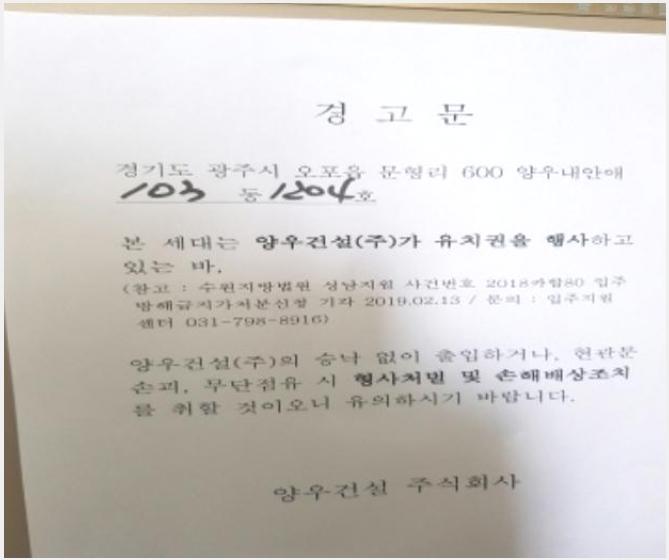 경 고 문
경기도 광주시 오포읍 문형리 600 양우내안애
103 동 1204호
본 세대는 양우건설(주)가 유치권을 행사하고
있는 바,
(참고 : 수원지방법원 성남지원 사건번호 2018카합80 입주
방해금지가처분신청 기각 2019.02.13 / 문의 : 입주지원
센터 031-798-8916)
양우건설(주)의 승낙 없이 출입하거나, 현관문
손괴, 무단점유 시 형사처벌 및 손해배상조치
를 취할 것이오니 유의하시기 바랍니다.
양우건설 주식회사